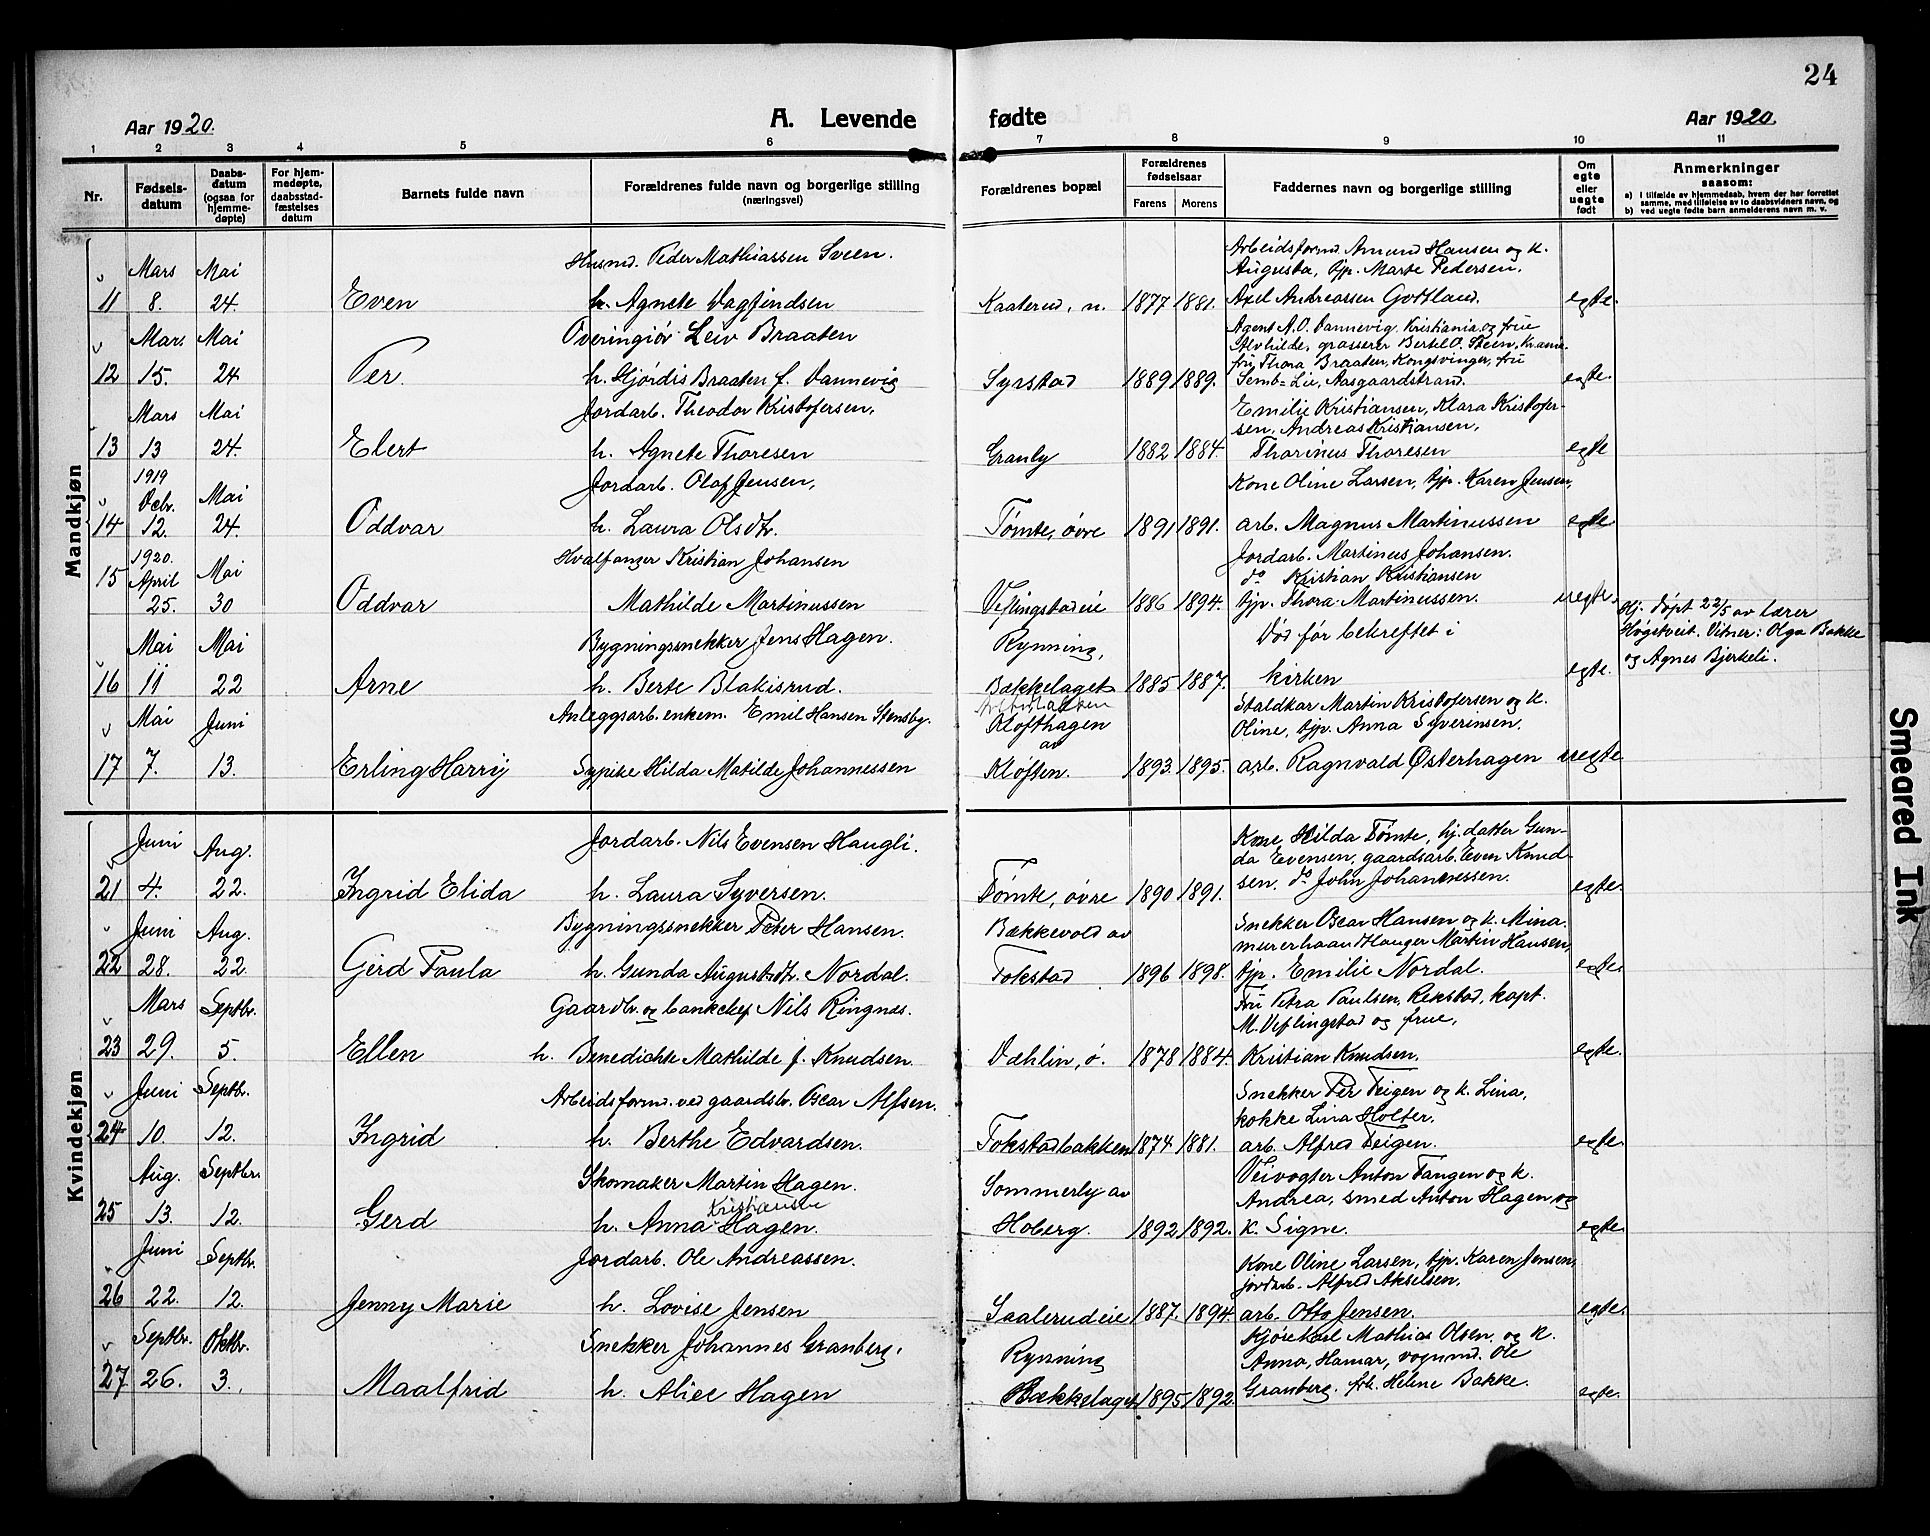 24
Aar 1920.
A. Levende fødte
Aar 1920.
1 2 3 4 5 6 7 8 9 10 11
Nr.
Fødsels-
datum
Daabs-
datum
(ogsaa for
hjemme-
døpte)
For hjem-
medøpte,
daabsstad-
fæstelses
datum
Barnets fulde navn
Forældrenes fulde navn og borgerlige stilling
(næringsvei)
Forældrenes bopæl
Forældrenes
fødselsaar
Farens
Morens
Faddernes navn og borgerlige stilling
Om
egte
eller
uegte
født
Anmerkninger
saasom:
a) i tilfælde av hjemmedaab, hvem der har forrettet
samme, med tilføielse av to daabsvidners navn, og
b) ved uegte fødte barn anmelderens navn m. v.
Mandkjøn
Husmd. Peder Mathiassen Sveen.
Arbeidsformd Amund Hansen og k.
Mars Mai
Augusta, tjp. Marte Pedersen.
11 8. 24. Even h. Agnete Dagfindsen Kaaterud, n. 1877 1881. Axel Andreassen Gotland. egte.
Agent A. O. Dannevig, Kristiania og frue
Mar. Mai Overingiør Leiv Braaten
Alvhilde, grosserer Bertel O. Steen, Krania.
fru Thora Braaten, Kongsvinger, fru
12 15. 24 Per. h. Hjördis Braaten f. Dannevig Syrstad 1889 1889. Semb=Lie, Aasgaardstrand. egte.
Mars Mai Jordarb. Theodor Kristofersen,
Emilie Kristiansen, Klara Kristofer-
sen, Andreas Kristiansen,
13 13 24. Elert h. Agnete Thoresen Granly 1882 1884. Thorinus Thoresen egte
1919
Decbr. Mai Jordarb. Olaf Jensen,
Kone Oline Larsen, tjp. Karen Jensen,
14 12. 24. Oddvar h. Laura Olsdtr. Tømte, øvre 1891 1891. arb. Magnus Martinussen egte
1920.
April Mai Hvalfanger Kristian Johansen
Jordarb. Martinus Johansen.
do Kristian Kristiansen
15 25. 30 Oddvar Mathilde Martinussen Veflingstadeie 1886 1894. tjp. Thora Martinussen. uegte.
Hj. døpt 22/5 av lærer
Høgstveit. Vitner: Olga Bakke
og Agnes Bjerkeli.
Mai Mai Bygningssnekker Jens Hagen. Rynning, Død før bekreftet i
16 11 22 Arne h. Berte Blakisrud. Bækkelaget 1885 1887. kirken egte.
Mai Juni Anleggsarb. enkem. Emil Hansen Stensby.
Klofthagen
av
Staldkar Martin Kristofersen og k.
Oline, tjp. Anna Syverinsen.
17 7. 13. Erling Harry Sypike Hilda Matilde Johannessen Kløften. 1893. 1895. arb. Ragnvald Østerhagen uegte.
Kvindekjøn
Juni Aug. Jordarb. Nils Evensen Haugli.
Kone Hilda Tømte, hj. datter Gun-
da Evensen, gaardsarb. Even Knud-
21 4. 22. Ingrid Elida h. Laura Syversen. Tømte, øvre 1890 1891. sen. do John Johannessen. egte.
Juni Aug. Bygningssnekker Peter Hansen. Bækkevold av
Snekker Oscar Hansen og k. Mina.
murerhaandtlanger Martin Hansen,
22 28. 22. Gerd Paula h. Gunda Augustsdtr. Nordal. Fokstad 1896 1898. tjp. Emilie Nordal. egte.
Mars Septbr. Gaardbr. og bankchef Nils Ringnæs.
Fru Petra Paulsen, Rekstad, kapt.
M. Veflingstad og frue,
23 29. 5. Ellen h. Benedichte Mathilde f. Knudsen. Dæhlin, ø. 1878 1884. Kristian Knudsen. egte.
Juni Septbr. Arbeidsformd. ved gaardsbr. Oscar Alfsen.
Snekker Per Teigen og k. Lina,
kokke Lina Holter.
24 10. 12. Ingrid h. Berthe Edvardsen. Fokstadbakken 1874. 1881. arb. Alfred Teigen. egte.
Aug. Septbr. Skomaker Martin Hagen. Sommerly av
Veivogter Anton Tangen og k.
Andrea, smed Anton Hagen og
Kristiansen
25 13. 12. Gerd h. Anna Hagen. Hoberg. 1892 1892. k. Signe. egte.
Juni Septbr. Jordarb. Ole Andreassen.
Kone Oline Larsen, tjp. Karen Jensen,
jordarb. Alfred Akselsen.
26 22. 12. Jenny Marie h. Lovise Jensen Saalerudeie 1887. 1894. arb. Otto Jensen. egte.
Septbr. Oktbr. Snekker Johannes Granberg. Rynning
Kjørekarl Mathias Olsen. og k.
Anna, Hamar, vognmd. Ole
27 26. 3. Maalfrid h. Alice Hagen Bækkelaget 1895 1892. Granberg. frk. Helene Bakke. egte.
Smeared Ink